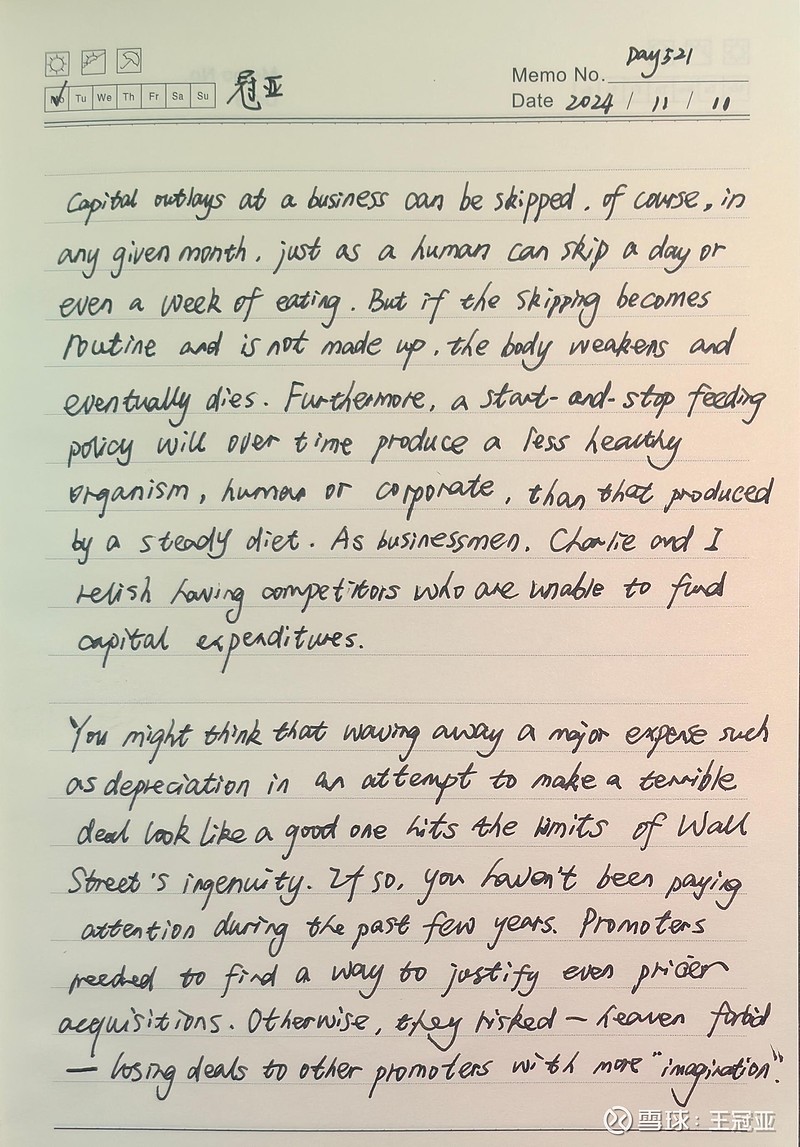 Day 521
Memo No.
Mo Tu We Th Fr Sa Su
冠亚
Date 2024 / 11 / 11
Capital outlays at a business can be skipped, of course, in
any given month, just as a human can skip a day or
even a week of eating. But if the skipping becomes
routine and is not made up, the body weakens and
eventually dies. Furthermore, a start-and-stop feeding
policy will over time produce a less healthy
organism, human or corporate, than that produced
by a steady diet. As businessmen, Charlie and I
relish having competitors who are unable to fund
capital expenditures.
You might think that waving away a major expense such
as depreciation in an attempt to make a terrible
deal look like a good one hits the limits of Wall
Street's ingenuity. If so, you haven't been paying
attention during the past few years. Promoters
needed to find a way to justify even pricier
acquisitions. Otherwise, they risked — heaven forbid
— losing deals to other promoters with more "imagination".
雪球：王冠亚